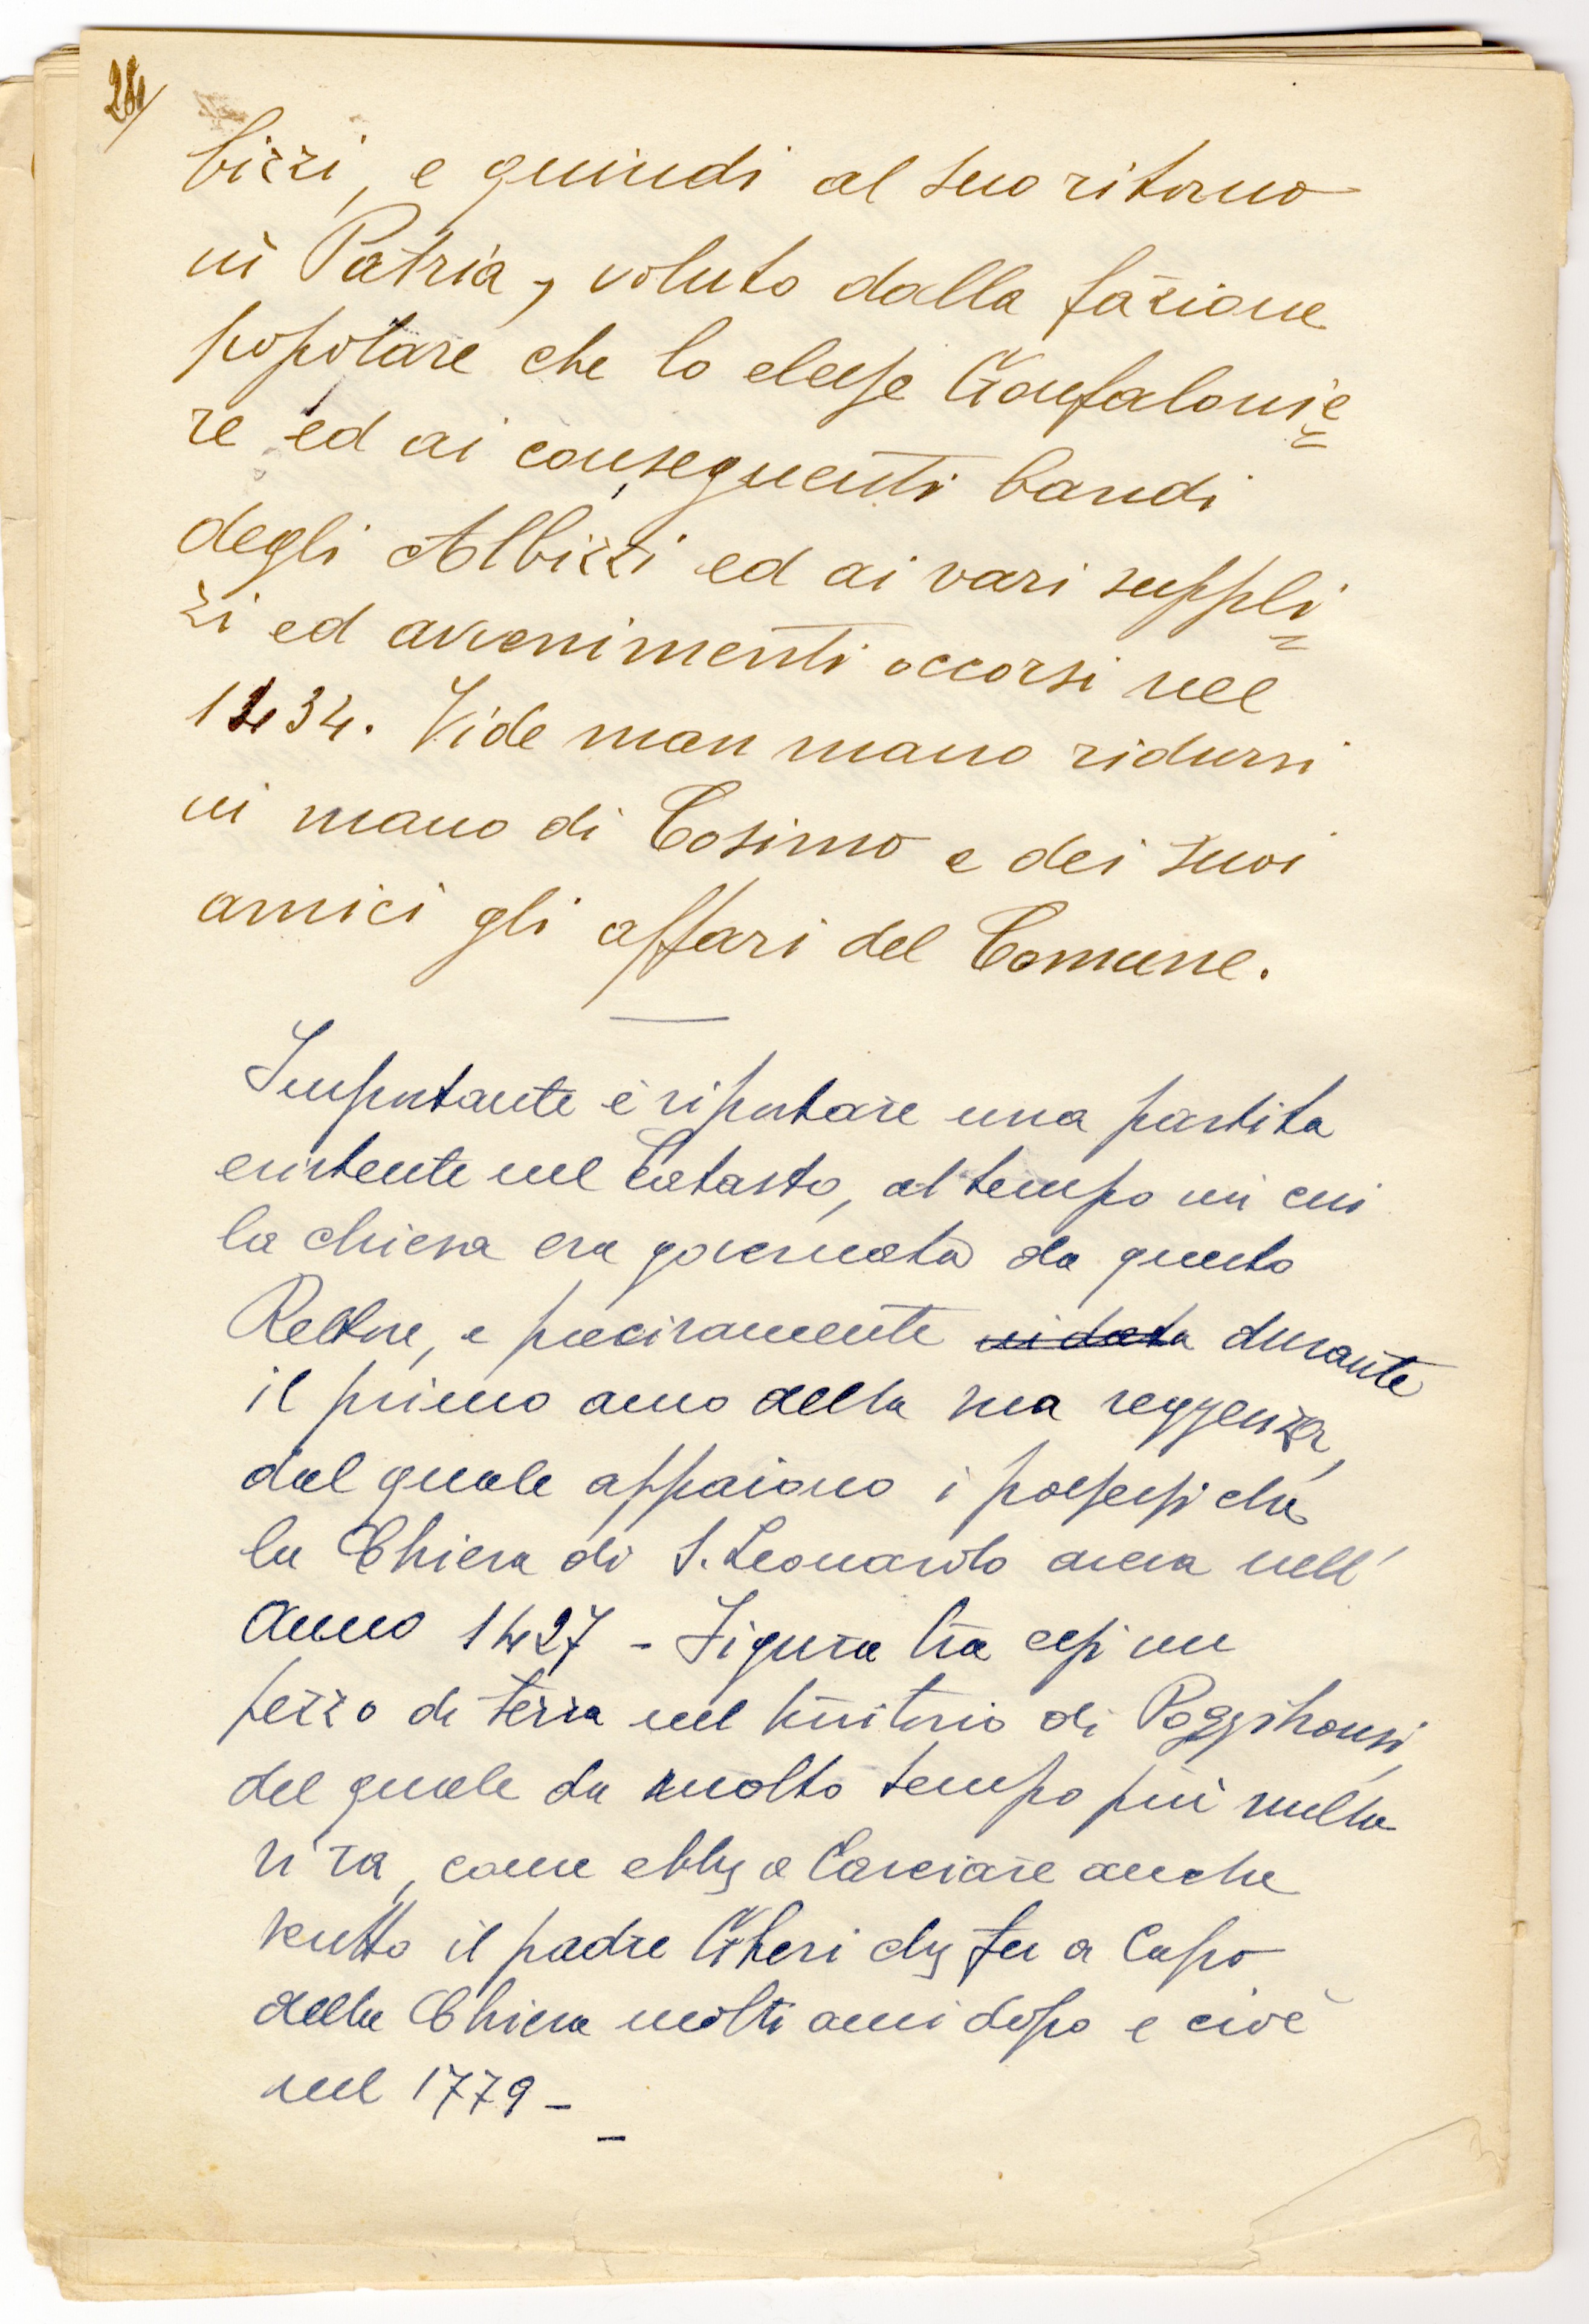 bizzi, e quindi al suo ritorno
in Patria, voluto dalla fazione
popolare che lo elesse Gonfalonie=
re ed ai conseguenti bandi
degli Albizzi ed ai vari suppli=
zi ed avvenimenti occorsi nel
1434. Vide man mano ridursi
in mano di Cosimo e dei suoi
amici gli affari del Comune.
Importante è riportare una partita
esistente nel Catasto, al tempo in cui
la chiesa era governata da questo
Rettore, e precisamente in data durante
il primo anno della sua reggenza,
dal quale appaiono i possessi che
la Chiesa di S. Leonardo aveva nell'
anno 1427 - Figura tra essi un
pezzo di terra nel territorio di Poggibonsi,
del quale da molto tempo più nulla
si sa, come ebbe a lasciare anche
scritto il padre Gheri che fu a Capo
della Chiesa molti anni dopo e cioè
nel 1779 -